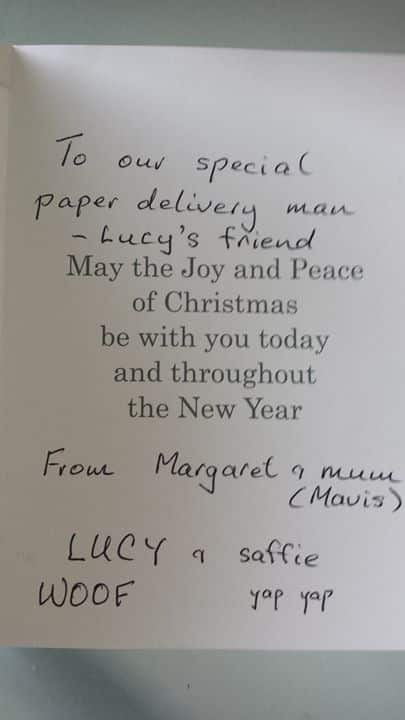 To our special
paper delivery man
- Lucy's friend
May the Joy and Peace
of Christmas
be with you today
and throughout
the New Year
From Margaret & mum
(Mavis)
LUCY & saffie
WOOF yap yap